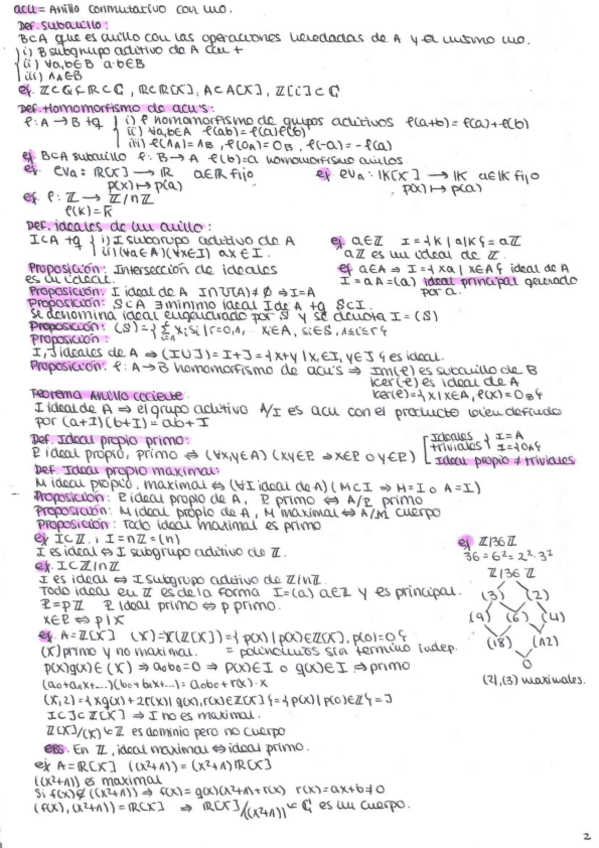 acu = Anillo conmutativo con uno.
Def. Subanillo:
B⊂A que es anillo con las operaciones heredadas de A y el mismo uno.
i) B subgrupo aditivo de A con +
ii) ∀a,b∈B a·b∈B
iii) 1_A∈B
ej. ℤ⊂ℚ⊂ℝ⊂ℂ, ℝ⊂ℝ[X], A⊂A[X], ℤ[i]⊂ℂ
Def. Homomorfismo de acu's:
f: A→B tq { i) f homomorfismo de grupos aditivos f(a+b)=f(a)+f(b)
ii) ∀a,b∈A f(ab)=f(a)f(b)
iii) f(1_A)=1_B, f(0_A)=0_B, f(-a)=-f(a)
ej. B⊂A subanillo f: B→A f(b)=a homomorfismo anillos.
ej. eva: ℝ[X]→ℝ a∈ℝ fijo ej. eva: 𝕂[X]→𝕂 a∈𝕂 fijo
p(x)↦p(a) p(x)↦p(a)
ej. f: ℤ→ℤ/nℤ
f(k)=k̄
Def. ideales de un anillo:
I⊂A tq { i) I subgrupo aditivo de A ej. a∈ℤ I={k | a|k}=aℤ
ii) (∀a∈A)(∀x∈I) ax∈I. aℤ es un ideal de ℤ.
Proposición: Intersección de ideales ej a∈A ⇒ I={xa | x∈A} ideal de A
es un ideal. I=aA=(a) ideal principal generado
Proposición: I ideal de A I∩U(A)≠∅ ⇒ I=A por a.
Proposición: S⊂A ∃ mínimo ideal I de A tq S⊂I.
Se denomina ideal engendrado por S y se denota I=(S)
Proposición: (S)={Σ xᵢsᵢ | r=0,1,.. xᵢ∈A, sᵢ∈S, 1≤i≤r}
Proposición:
I,J ideales de A ⇒ (I∪J)=I+J={x+y | x∈I, y∈J} es ideal.
Proposición: f: A→B homomorfismo de acu's ⇒ Im(f) es subanillo de B
ker(f) es ideal de A
ker(f)={x | x∈A, f(x)=0_B}
Teorema Anillo cociente
I ideal de A ⇒ el grupo aditivo A/I es acu con el producto bien definido
por (a+I)(b+I)=ab+I
Def. Ideal propio primo: [Ideales triviales { I=A I={0}
P ideal propio, primo ⇔ (∀x,y∈A)(xy∈P ⇒ x∈P o y∈P) Ideal propio ≠ triviales
Def. Ideal propio maximal:
M ideal propio, maximal ⇔ (∀I ideal de A)(M⊂I ⇒ M=I o A=I)
Proposición: P ideal propio de A, P primo ⇔ A/P primo
Proposición: M ideal propio de A, M maximal ⇔ A/M cuerpo
Proposición: Todo ideal maximal es primo
ej I⊂ℤ, I=nℤ=(n) ej ℤ/36ℤ
I es ideal ⇔ I subgrupo aditivo de ℤ. 36=6²=2²·3²
ej. I⊂ℤ/nℤ ℤ/36ℤ
I es ideal ⇔ I subgrupo aditivo de ℤ/nℤ. (3) (2)
Todo ideal en ℤ es de la forma I=(a) a∈ℤ y es principal. (9) (6) (4)
P=pℤ P ideal primo ⇔ p primo. (18) (12)
x∈P ⇔ p|x 0
ej. A=ℤ[X] (X)=X(ℤ[X])={p(x) | p(x)∈ℤ[X], p(0)=0} (2),(3) maximales.
(X) primo y no maximal. = polinomios sin termino indep.
p(x)q(x)∈(X) ⇒ a₀b₀=0 ⇒ p(x)∈I o q(x)∈I ⇒ primo
(a₀+a₁x+...)(b₀+b₁x+...)=a₀b₀+r(x)·x
(X,2)={xq(x)+2r(x) | q(x),r(x)∈ℤ[X]}={p(x) | p(0)∈2ℤ}=J
I⊂J⊂ℤ[X] ⇒ I no es maximal.
ℤ[X]/(X)≃ℤ es dominio pero no cuerpo
OBS. En ℤ, ideal maximal ⇔ ideal primo.
ej A=ℝ[X] ((x²+1))=(x²+1)ℝ[X]
((x²+1)) es maximal
Si f(x)∉((x²+1)) ⇒ f(x)=q(x)(x²+1)+r(x) r(x)=ax+b≠0
(f(x),(x²+1))=ℝ[X] ⇒ ℝ[X]/((x²+1))≃ℂ es un cuerpo.
2